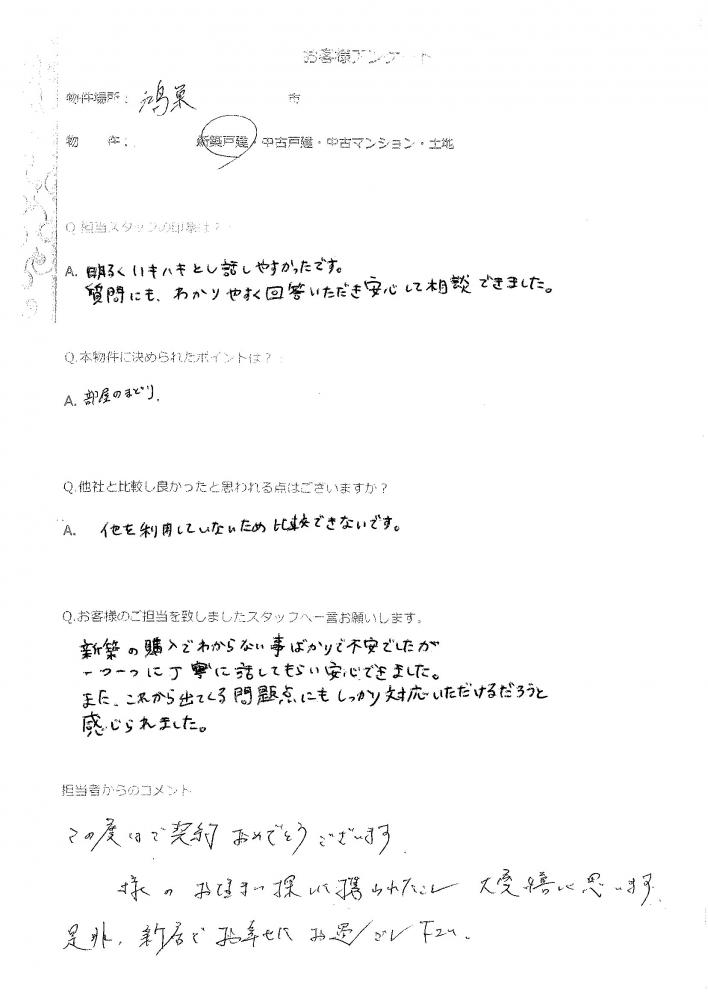 お客様アンケート
物件場所： 鴻巣 市
物 件： 新築戸建・中古戸建・中古マンション・土地
Q.担当スタッフの印象は？
A. 明るくハキハキとし話しやすかったです。
質問にも、わかりやすく回答いただき安心して相談できました。
Q.本物件に決められたポイントは？
A. 部屋のまどり.
Q.他社と比較し良かったと思われる点はございますか？
A. 他を利用していないため比較できないです。
Q.お客様のご担当を致しましたスタッフへ一言お願いします。
新築の購入でわからない事ばかりで不安でしたが
一つ一つに丁寧に話してもらい安心できました。
また、これから出てくる問題点にもしっかり対応いただけるだろうと
感じられました。
担当者からのコメント
この度はご契約おめでとうございます
様のお住まい探しに携られたこと 大変嬉しく思います.
是非、新居でお幸せにお過ごし下さい.